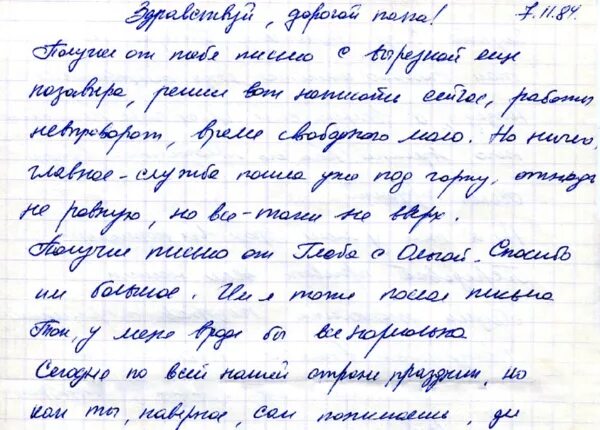 Здравствуй, дорогой папа! 7.11.84.
Получил от тебя письмо с вырезкой еще
позавчера, решил вот написать сейчас, работы
невпроворот, время свободного мало. Но ничего,
главное - служба пошла уже под горку,
не ровную, но все-таки не вверх.
Получил письмо от Глеба с Ольгой. Спасибо
им большое. Им я тоже послал письма
Так, у меня вроде бы все нормально
Сегодня по всей нашей стране праздник, но
как ты, наверное, сам понимаешь,